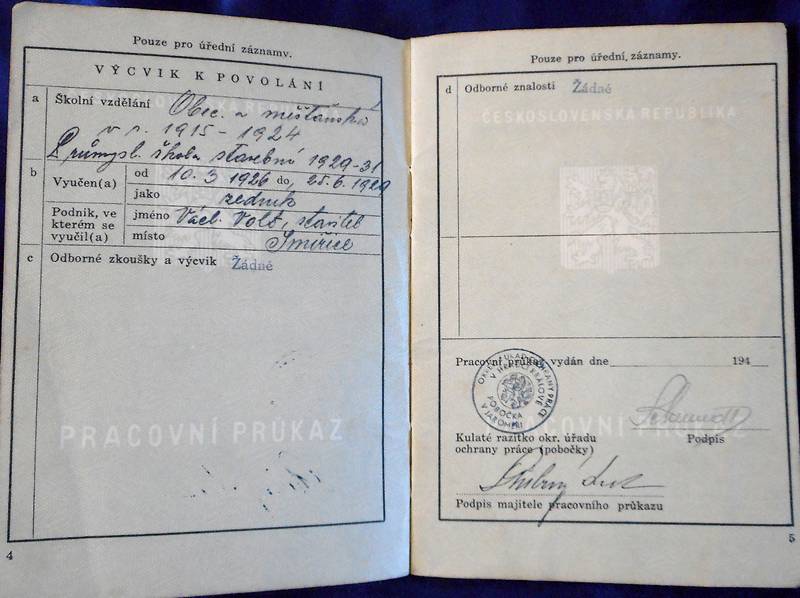 Pouze pro úřední záznamy.
VÝCVIK K POVOLÁNÍ
a Školní vzdělání Obec. a měšťanská
v r. 1915-1924
Průmysl. škola stavební 1929-31
b Vyučen(a) od 10.3 1926 do 25.6.1929
jako zedník
Podnik, ve kterém se vyučil(a) jméno Václ. Volt, stavitel
místo Smiřice
c Odborné zkoušky a výcvik Žádné
PRACOVNÍ PRŮKAZ
4
Pouze pro úřední záznamy.
d Odborné znalosti Žádné
ČESKOSLOVENSKÁ REPUBLIKA
Pracovní průkaz vydán dne 194
OKRESNÍ ÚŘAD OCHRANY PRÁCE
V HRADCI KRÁLOVÉ
POBOČKA
V JAROMĚŘI
PRACOVNÍ PRŮKAZ
Kulaté razítko okr. úřadu
ochrany práce (pobočky)
Podpis
Podpis majitele pracovního průkazu
5